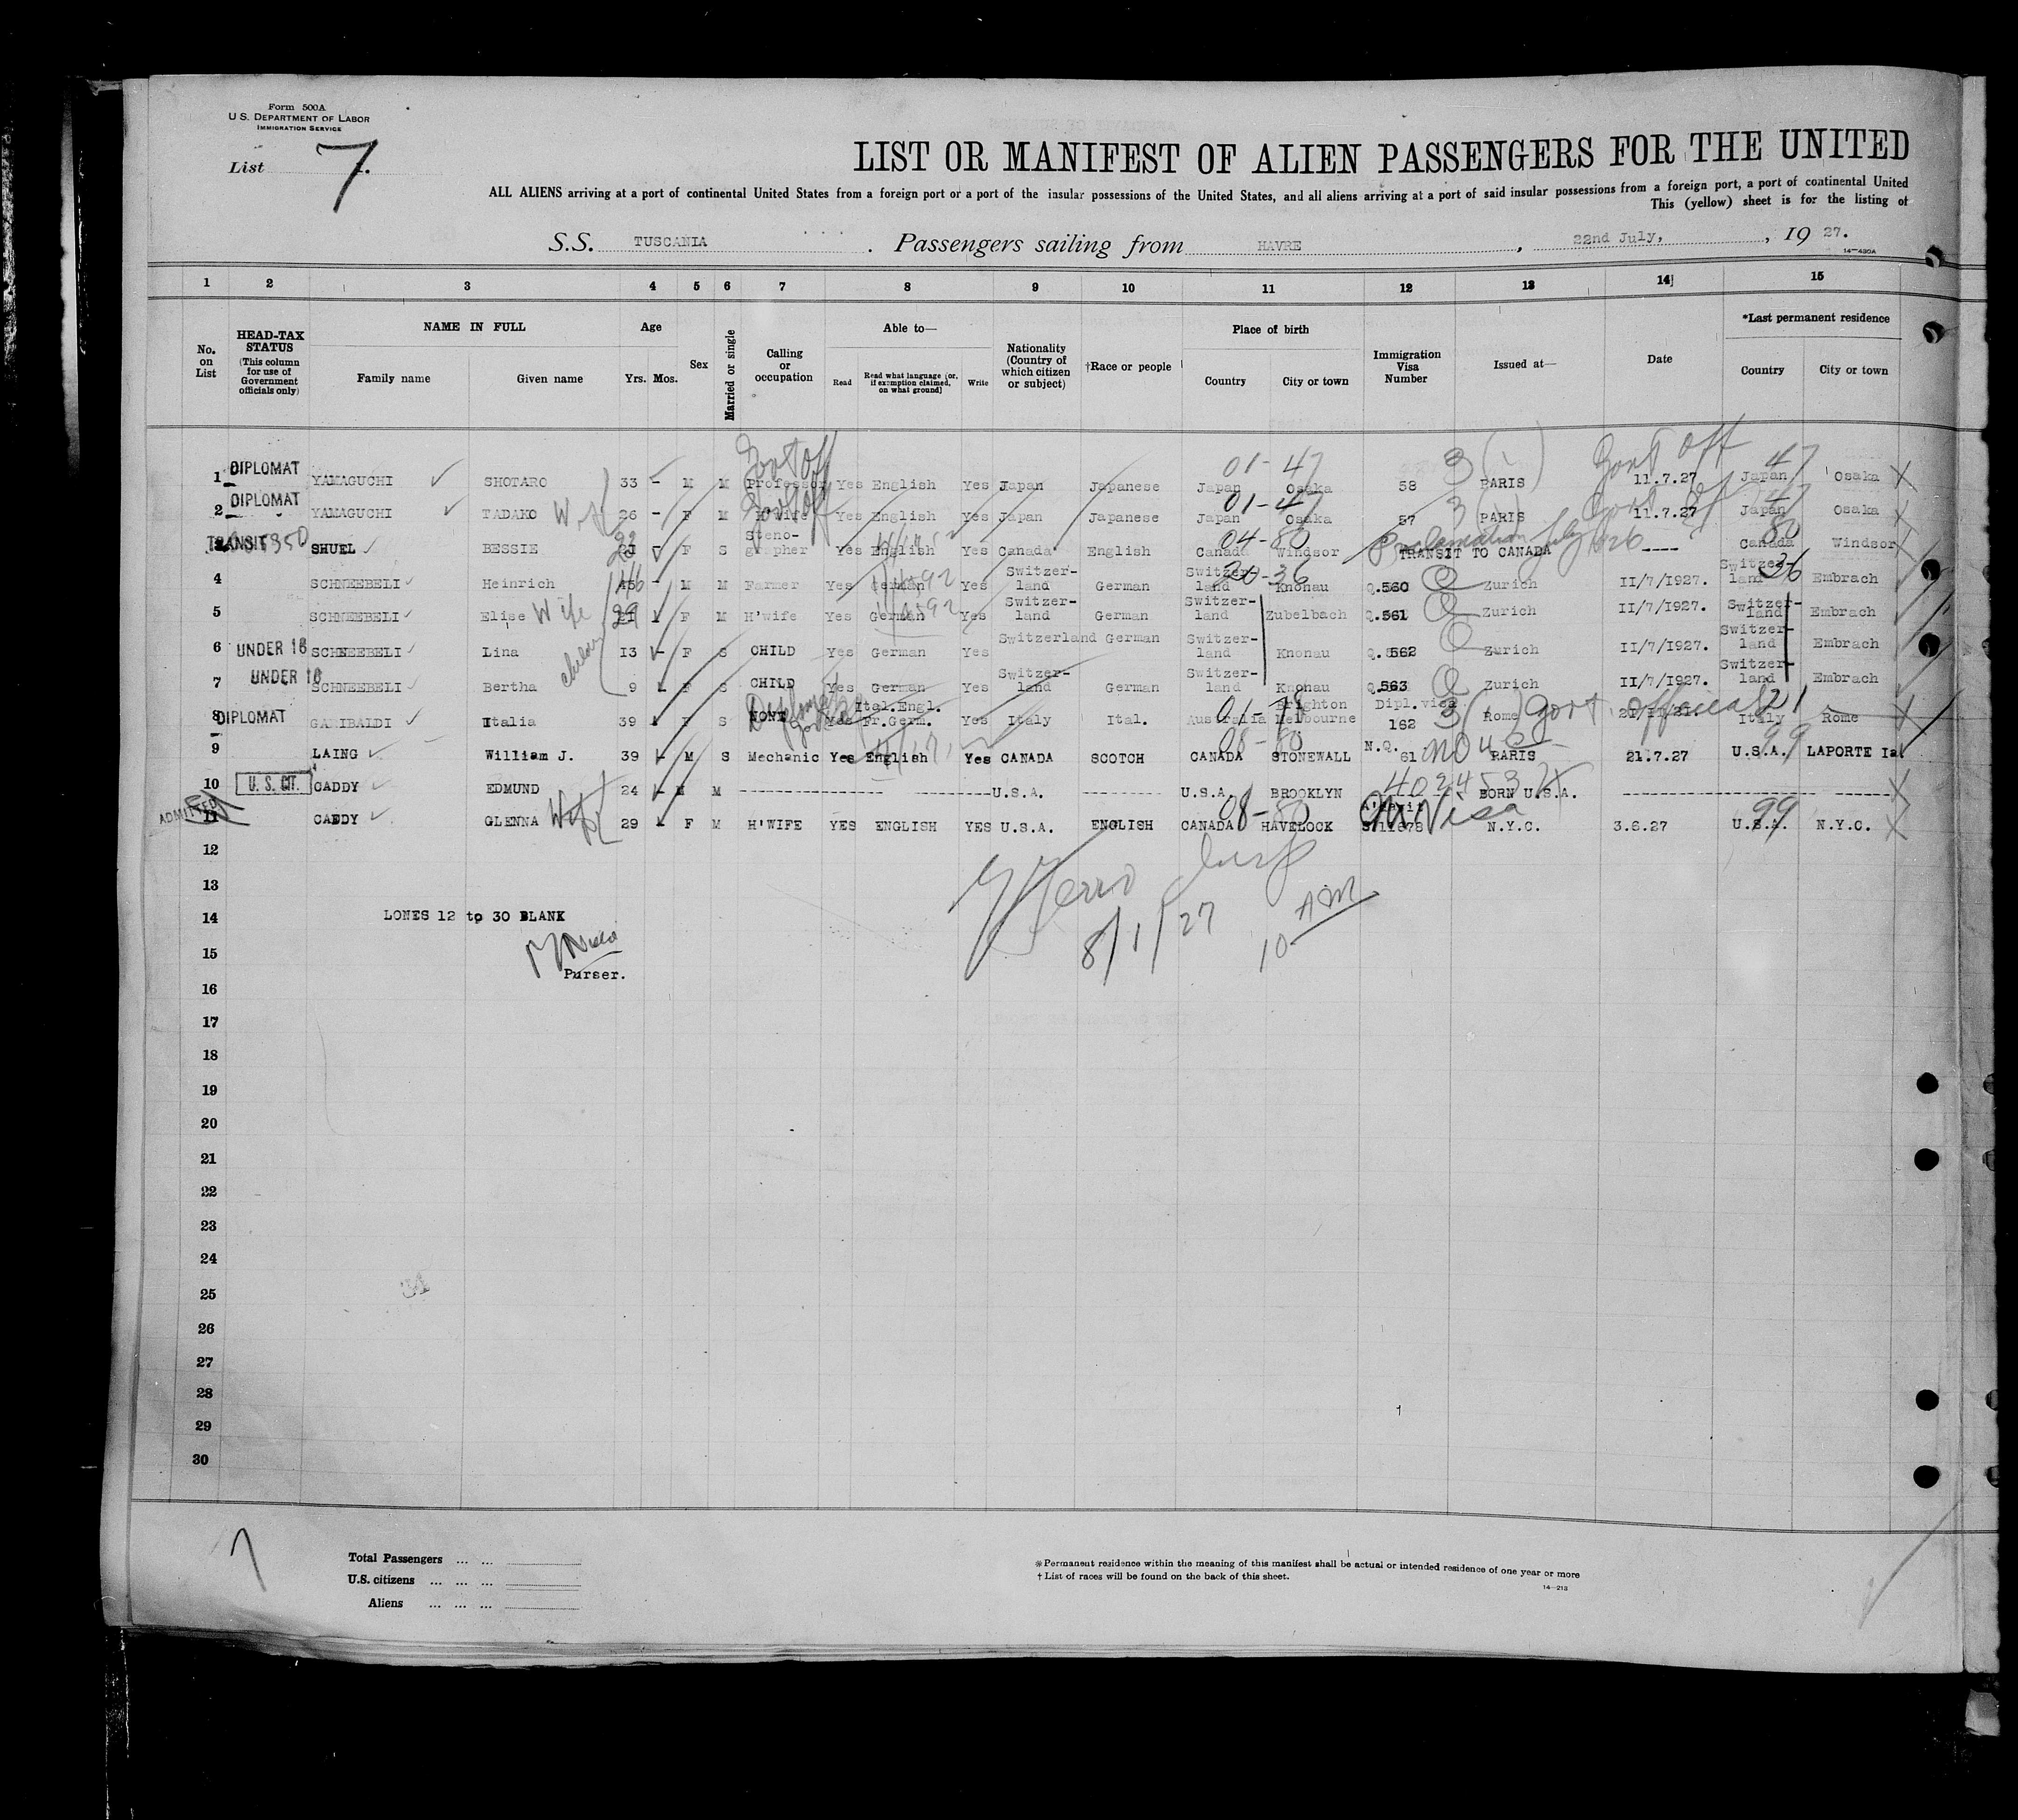 Form 500A
U. S. DEPARTMENT OF LABOR
IMMIGRATION SERVICE
List 7.
LIST OR MANIFEST OF ALIEN PASSENGERS FOR THE UNITED
ALL ALIENS arriving at a port of continental United States from a foreign port or a port of the insular possessions of the United States, and all aliens arriving at a port of said insular possessions from a foreign port, a port of continental United
This (yellow) sheet is for the listing of
S.S. TUSCANIA . Passengers sailing from HAVRE , 22nd July, , 19 27.
14—430A
1 2 3 4 5 6 7 8 9 10 11 12 13 14 15
No. on List
HEAD-TAX STATUS (This column for use of Government officials only)
NAME IN FULL
Family name Given name
Age
Yrs. Mos.
Sex
Married or single
Calling or occupation
Able to—
Read Read what language [or, if exemption claimed, on what ground] Write
Nationality (Country of which citizen or subject)
†Race or people
Place of birth
Country City or town
Immigration Visa Number
Issued at—
Date
*Last permanent residence
Country City or town
Govt off 01-47 3( ) Govt off 47
1 DIPLOMAT YAMAGUCHI SHOTARO 33 - M M Professor Yes English Yes Japan Japanese Japan Osaka 58 PARIS 11.7.27 Japan Osaka
Govt off 01-47 3( ) Govt off 47
2 DIPLOMAT YAMAGUCHI TADAKO Wife 26 - F M H'wife Yes English Yes Japan Japanese Japan Osaka 57 PARIS 11.7.27 Japan Osaka
22 04-80 Proclamation July 1926 80
3 TRANSIT SHUEL BESSIE F S Steno-grapher Yes English Yes Canada English Canada Windsor TRANSIT TO CANADA ---- Canada Windsor
46 4492 20-36 Q 36
4 SCHNEEBELI Heinrich 45 - M M Farmer Yes German Yes Switzer-land German Switzer-land Knonau Q.560 Zurich II/7/I927. Switzer-land Embrach
29 4492 Q
5 SCHNEEBELI Elise Wife F M H'wife Yes German Yes Switzer-land German Switzer-land Zubelbach Q.561 Zurich II/7/I927. Switzer-land Embrach
6 UNDER 16 SCHNEEBELI Lina children I3 - F S CHILD Yes German Yes Switzerland German Switzer-land Knonau Q.562 Zurich II/7/I927. Switzer-land Embrach
7 UNDER 16 SCHNEEBELI Bertha 9 F S CHILD Yes German Yes Switzer-land German Switzer-land Knonau Q.563 Q Zurich II/7/I927. Switzer-land Embrach
8 DIPLOMAT GARIBALDI Italia 39 F S NONE Diplomat Yes Ital.Engl. Fr.Germ. Yes Italy Ital. Australia Brighton Melbourne Dipl.visa 162 3( ) Rome Govt. official 21 Italy Rome
9 LAING William J. 39 - M S Mechanic Yes English Yes CANADA SCOTCH CANADA STONEWALL 08-80 N.Q. 61 PARIS 21.7.27 U.S.A. 99 LAPORTE Ia
10 U. S. CIT. CADDY EDMUND 24 - M M ---------------- U.S.A. ---------- U.S.A. BROOKLYN BORN U.S.A. ----------------
ADMITTED
11 CADDY GLENNA Wife 29 - F M H'WIFE YES ENGLISH YES U.S.A. ENGLISH CANADA 08-80 HAVELOCK Visa N.Y.C. 3.6.27 U.S.A. 99 N.Y.C.
12
13
14 LONES 12 to 30 BLANK
8/1/27 10 AM
15
Purser.
16
17
18
19
20
21
22
23
24
25
26
27
28
29
30
7
Total Passengers ... ...
U.S. citizens ... ... ...
Aliens ... ... ...
*Permanent residence within the meaning of this manifest shall be actual or intended residence of one year or more
† List of races will be found on the back of this sheet.
14—213